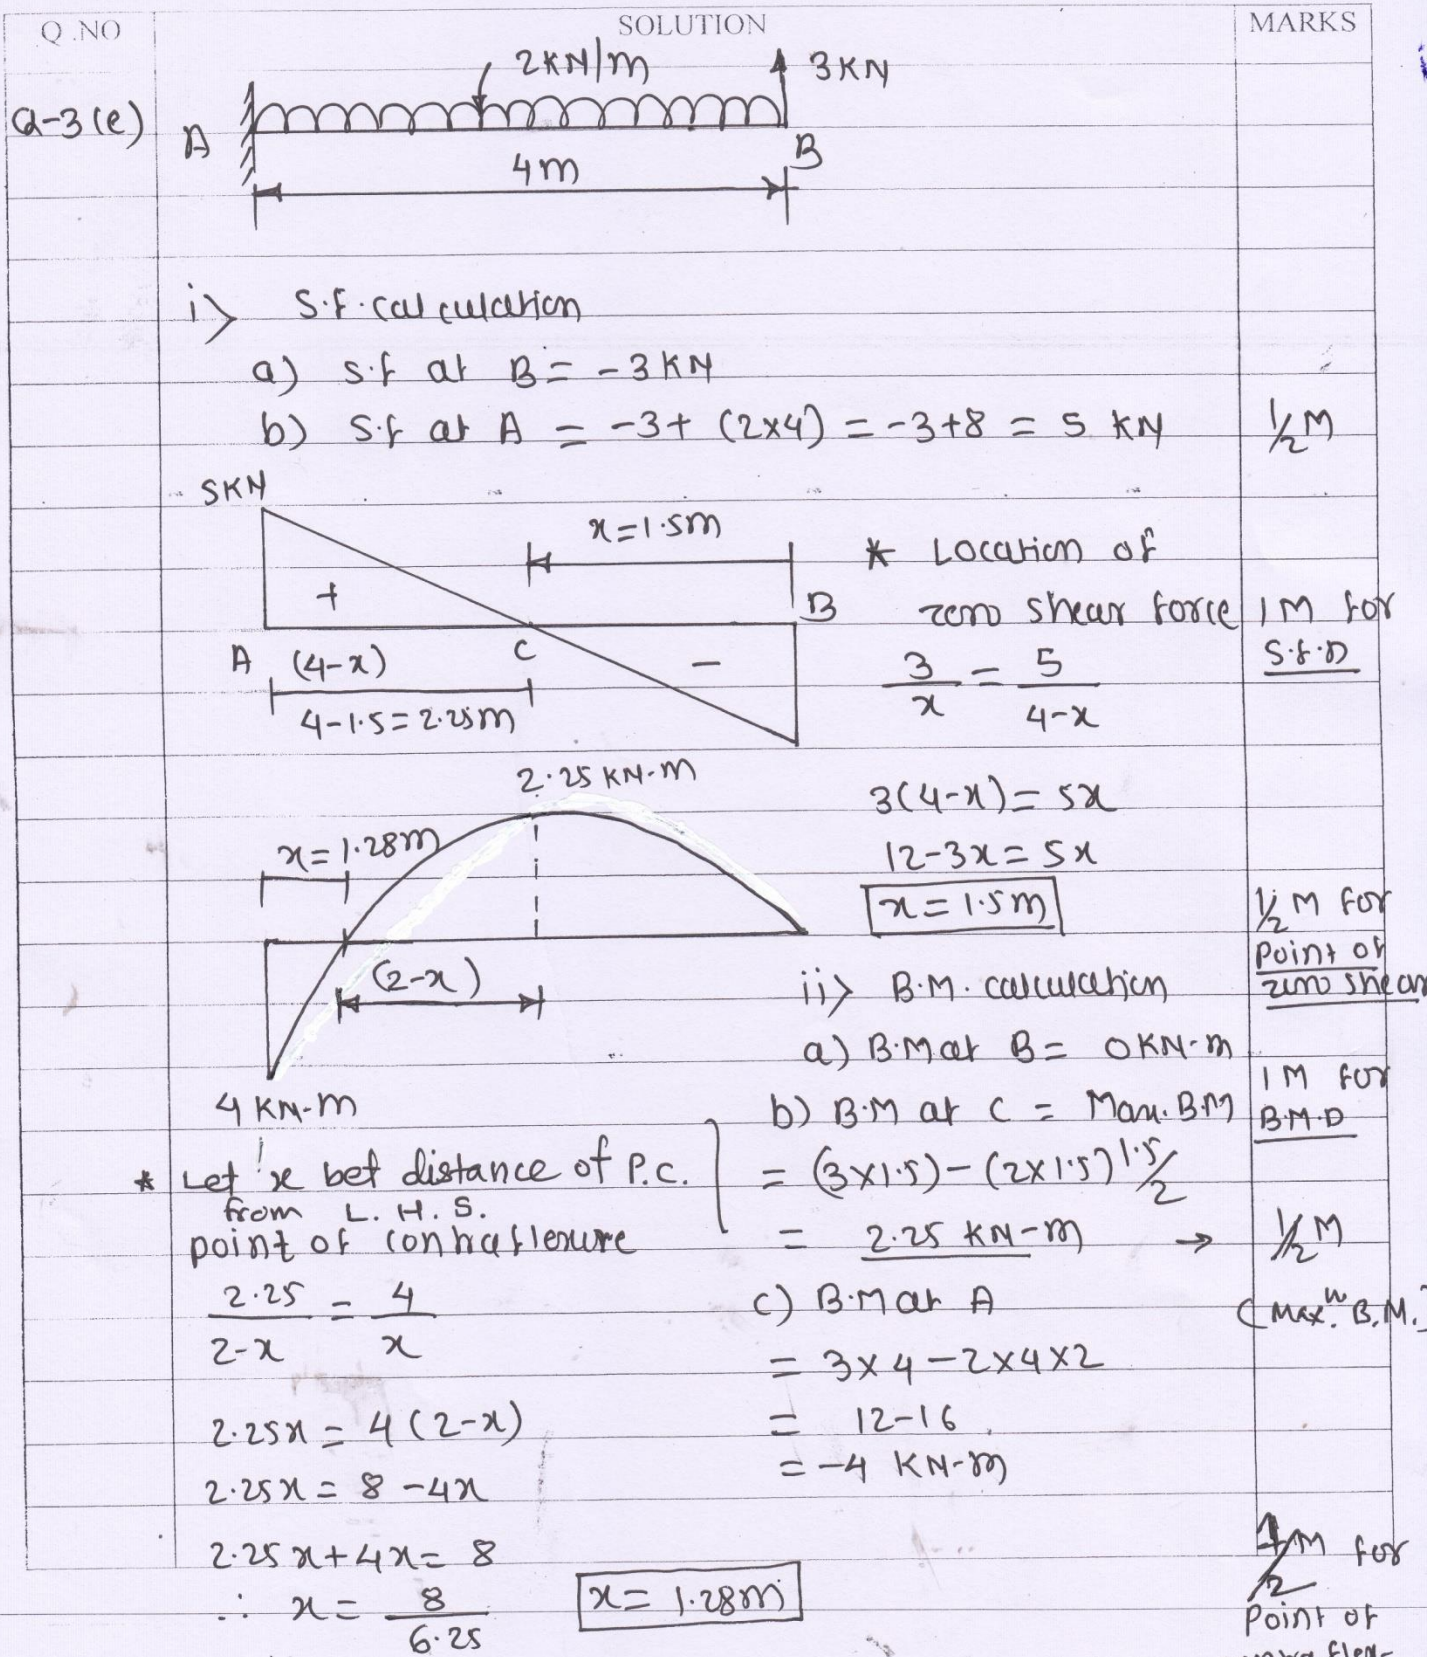 Q.NO SOLUTION MARKS
Q-3(e)
2KN/m 3KN
A B
4m
i> S.F. calculation
a) S.f at B = -3KN
b) S.f at A = -3+ (2x4) = -3+8 = 5 KN ½M
5KN
x=1.5m
+ B
A (4-x) C -
4-1.5=2.25m
* Location of
zero shear force 1M for
S.F.D
3/x = 5/4-x
3(4-x)=5x
12-3x=5x
x=1.5m
½M for
Point of
zero shear
2.25 KN-m
x=1.28m
(2-x)
4 KN-m
ii> B.M. calculation
a) B.M at B= 0KN-m
1M for
B.M.D
b) B.M at C = Max. B.M
= (3x1.5)-(2x1.5)1.5/2
= 2.25 KN-m → ½M
(Maxᵐ. B.M.)
c) B.M at A
= 3x4-2x4x2
= 12-16
= -4 KN-m
* Let x bet distance of P.C.
from L.H.S.
point of contraflexure
2.25/2-x = 4/x
2.25x = 4(2-x)
2.25x = 8-4x
2.25x+4x= 8
∴ x = 8/6.25 x= 1.28m
½M for
Point of